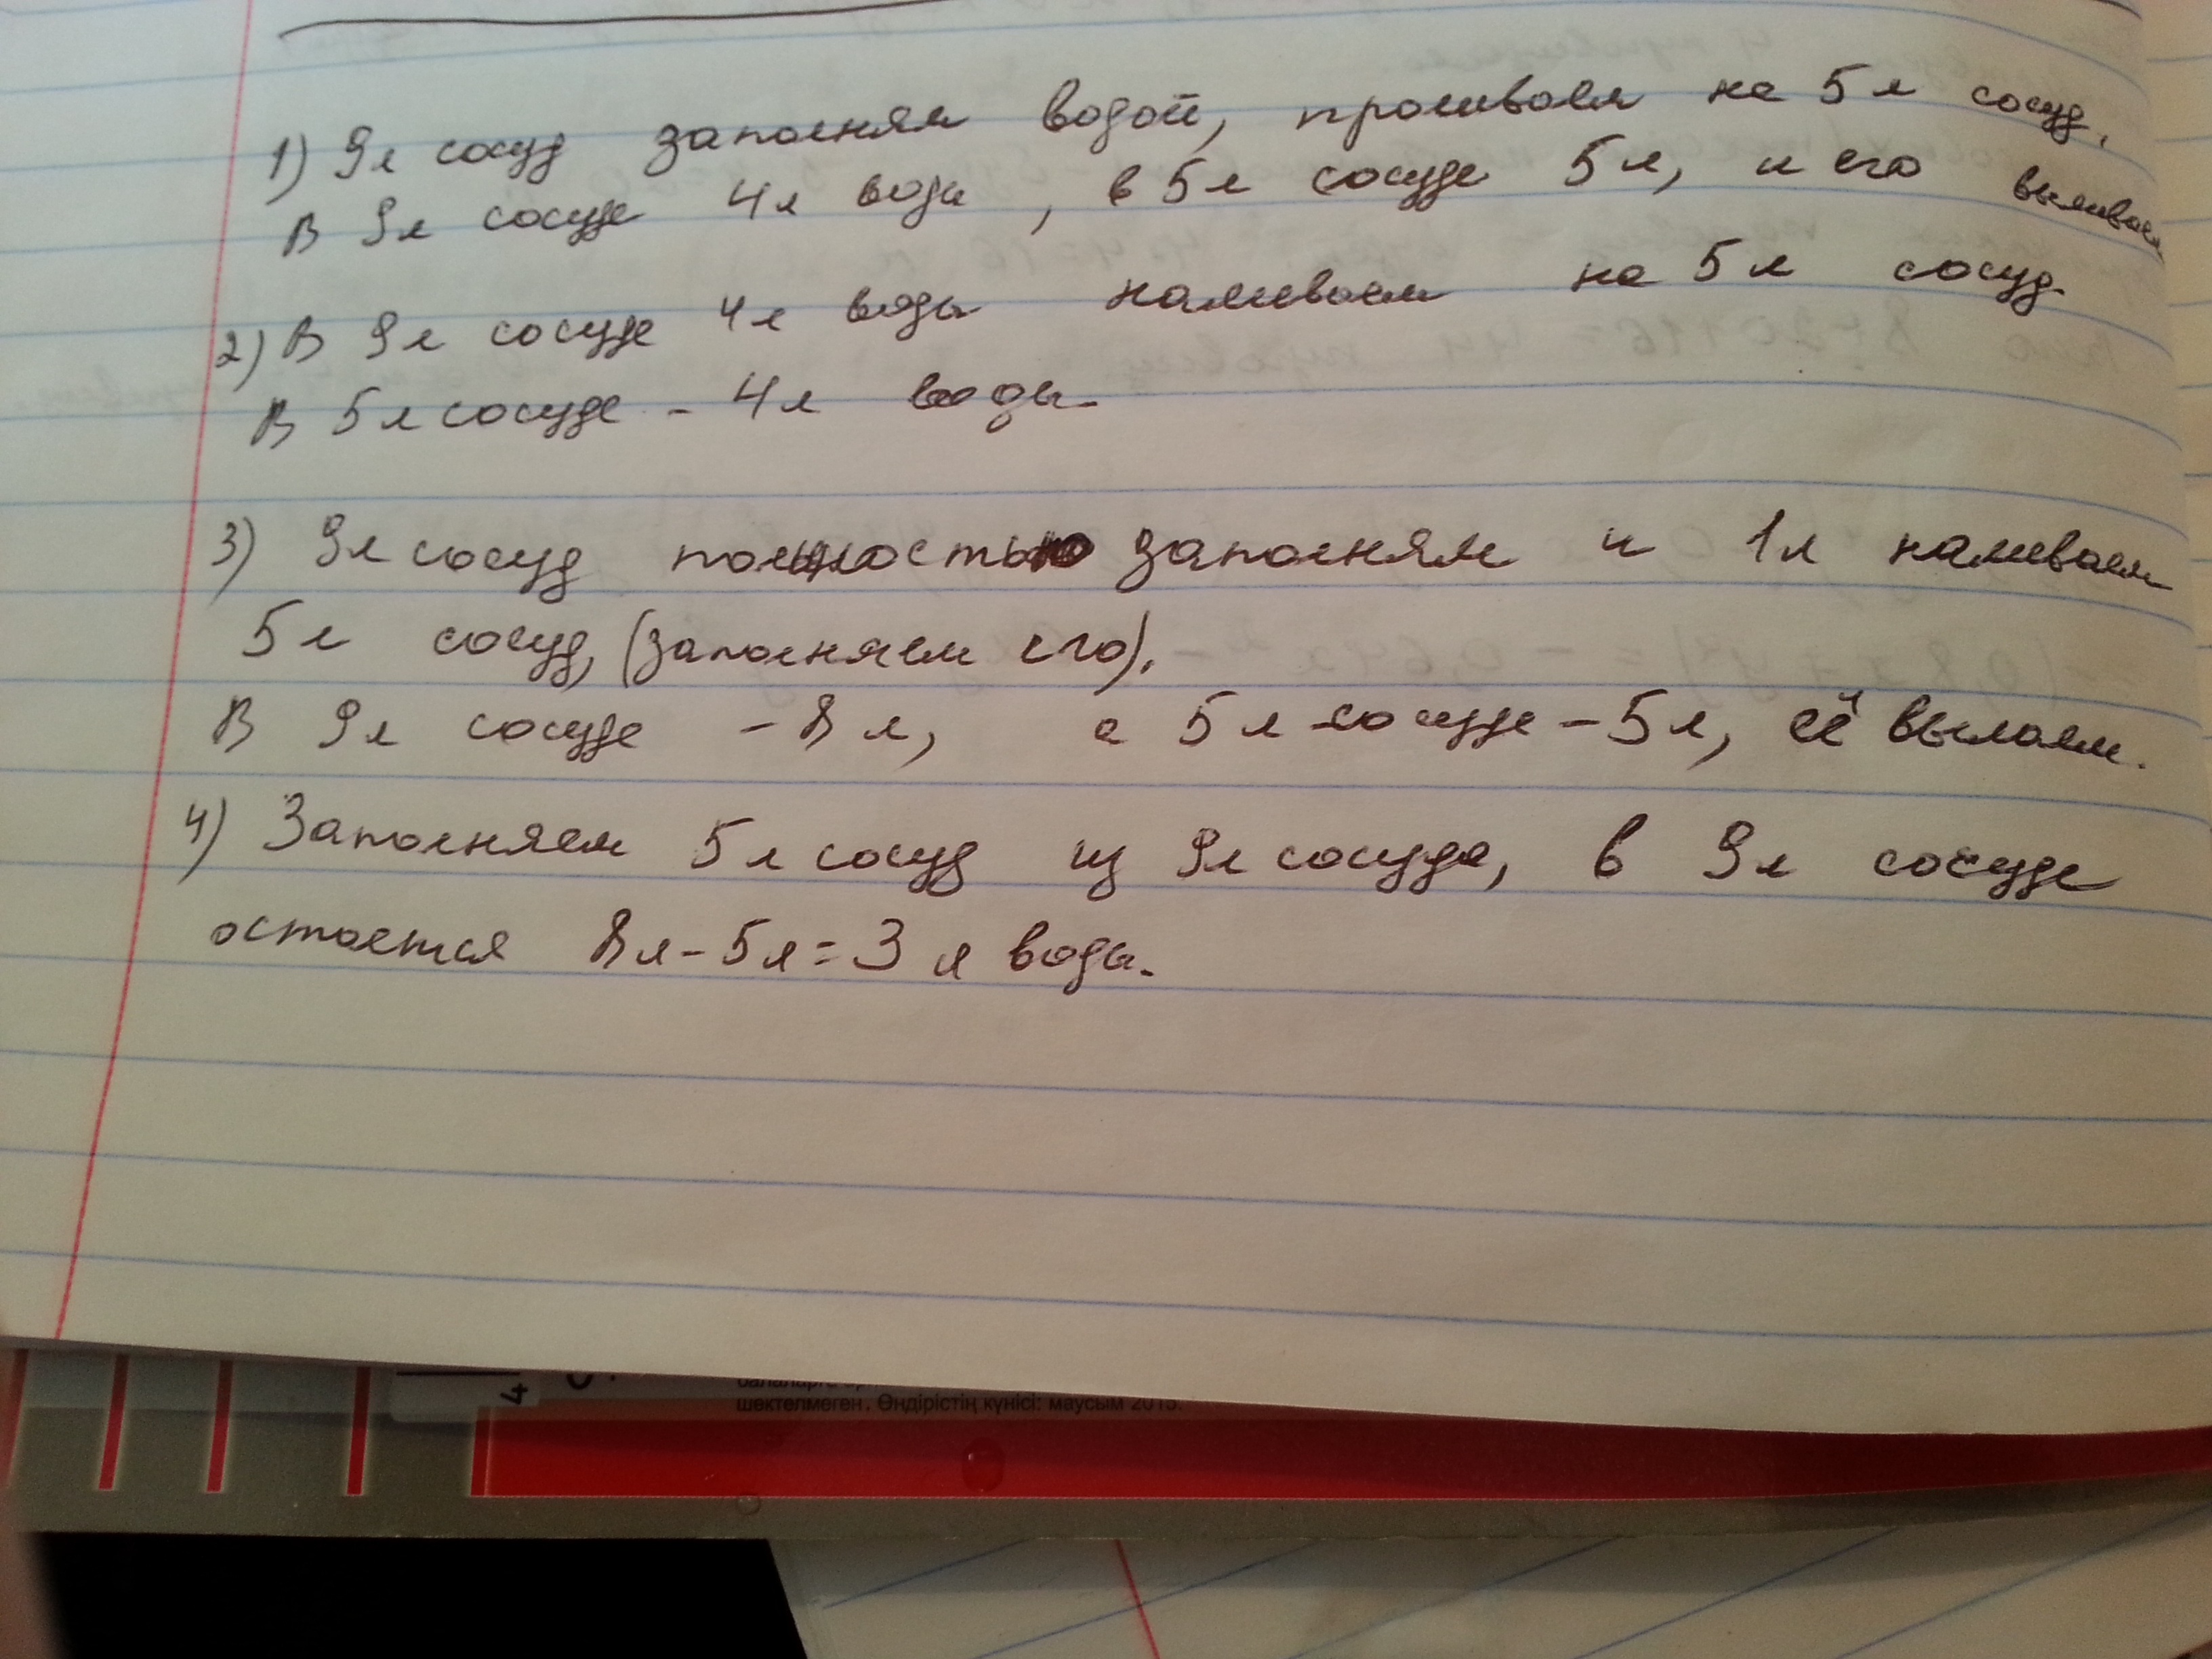 1) 9л сосуд заполням водой, проливаем на 5л сосуд.
В 9л сосуде 4л воды, в 5л сосуде 5л, и его выливаем
2) В 9л сосуде 4л воды наливаем на 5л сосуд.
В 5л сосуде - 4л воды.
3) 9л сосуд полностью заполням и 1л наливаем
5л сосуд, (заполняем его).
В 9л сосуде - 8л, а 5л сосуде - 5л, её вылаем.
4) Заполняем 5л сосуд из 9л сосуда, в 9л сосуде
остается 8л - 5л = 3л воды.
4
шектелмеген. Өндірістің күнісі: маусым 2015.